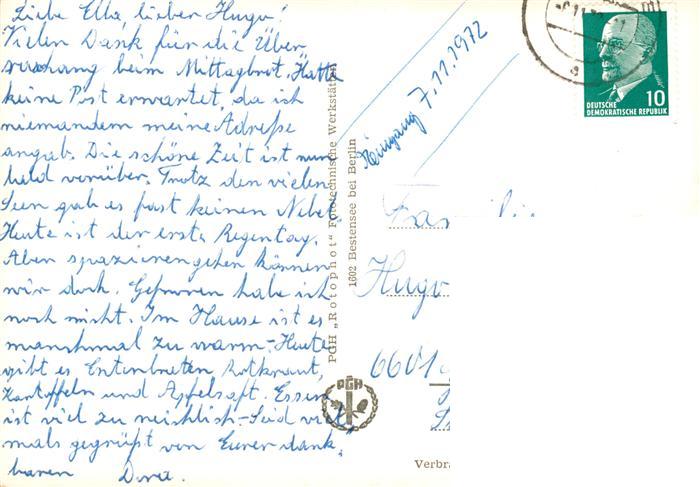 Liebe Ella, lieber Hugo!
Vielen Dank für die Über,
raschung beim Mittagbrot. Hatte
keine Post erwartet, da ich
niemandem meine Adreße
angab. Die schöne Zeit ist nun
bald vorüber. Trotz den vielen
Seen gab es fast keinen Nebel.
Heute ist der erste Regentag.
Aber spazierengehen können
wir doch. Gefroren habe ich
noch nicht. Im Hause ist es
manchmal zu warm. Heute
gibt es Entenbraten Rotkraut,
Kartoffeln und Apfelsaft. Essen
ist viel zu reichlich. Seid viel,
mals gegrüßt von Eurer dank,
baren Dora.
PGH „Rotophot" Fototechnische Werkstätten
1602 Bestensee bei Berlin
Eingang 7.11.1972
DEUTSCHE
DEMOKRATISCHE REPUBLIK
10
Fam
Hugo
6601
PGH
Verbr